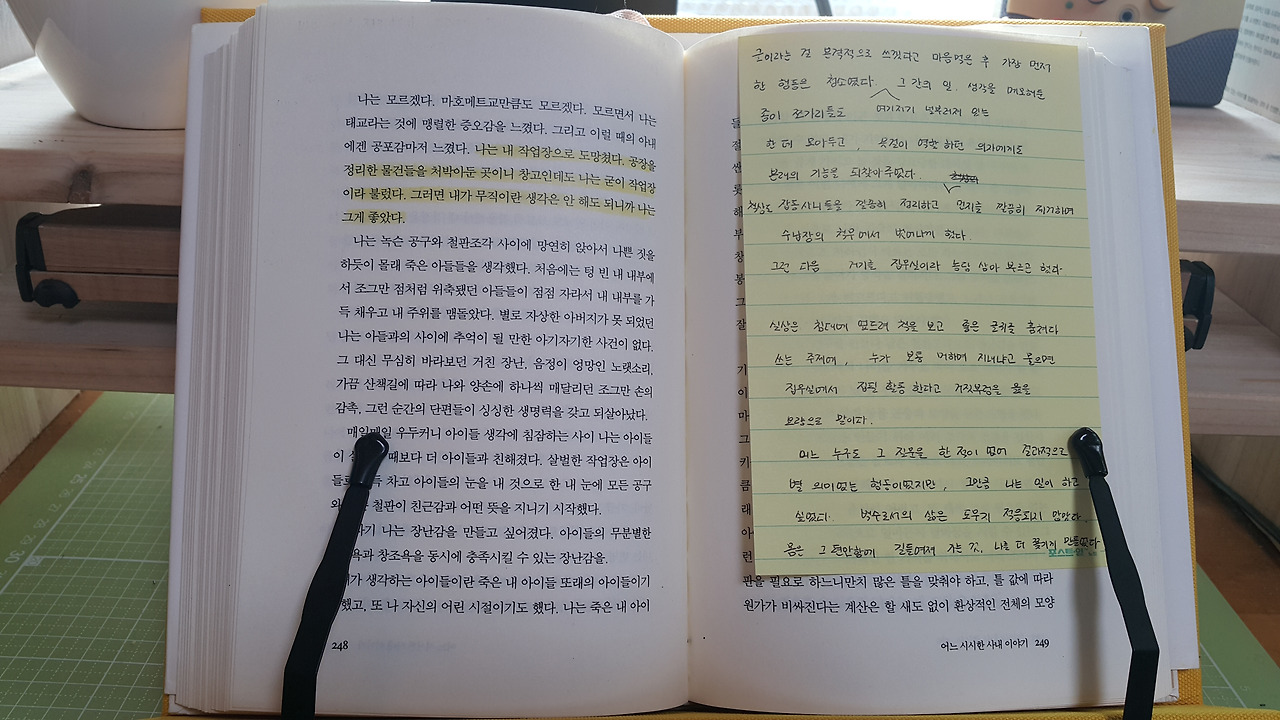 나는 모르겠다. 마호메트교만큼도 모르겠다. 모르면서 나는
태교라는 것에 맹렬한 증오감을 느꼈다. 그리고 이럴 때의 아내
에겐 공포감마저 느꼈다. 나는 내 작업장으로 도망쳤다. 공장을
정리한 물건들을 처박아둔 곳이니 창고인데도 나는 굳이 작업장
이라 불렀다. 그러면 내가 무직이란 생각은 안 해도 되니까 나는
그게 좋았다.
나는 녹슨 공구와 철판조각 사이에 망연히 앉아서 나쁜 짓을
하듯이 몰래 죽은 아들들을 생각했다. 처음에는 텅 빈 내 내부에
서 조그만 점처럼 위축됐던 아들들이 점점 자라서 내 내부를 가
득 채우고 내 주위를 맴돌았다. 별로 자상한 아버지가 못 되었던
나는 아들과의 사이에 추억이 될 만한 아기자기한 사건이 없다.
그 대신 무심히 바라보던 거친 장난, 음정이 엉망인 노랫소리,
가끔 산책길에 따라 나와 양손에 하나씩 매달리던 조그만 손의
감촉, 그런 순간의 단편들이 싱싱한 생명력을 갖고 되살아났다.
매일매일 우두커니 아이들 생각에 침잠하는 사이 나는 아이들
이 때보다 더 아이들과 친해졌다. 살벌한 작업장은 아이
들로 차고 아이들의 눈을 내 것으로 한 내 눈에 모든 공구
와 철판이 친근감과 어떤 뜻을 지니기 시작했다.
나는 장난감을 만들고 싶어졌다. 아이들의 무분별한
욕을 동시에 충족시킬 수 있는 장난감을.
생각하는 아이들이란 죽은 내 아이들 또래의 아이들이기
했고, 또 나 자신의 어린 시절이기도 했다. 나는 죽은 내 아이
248
글이라는 걸 본격적으로 쓰겠다고 마음먹은 후 가장 먼저
한 행동은 청소였다. 그 간의 일, 생각을 메모해둔
종이 쪼가리들도 여기저기 널부러져 있는
한 데 모아두고, 옷걸이 역할 하던 의자에게도
본래의 기능을 되찾아주었다.
책상도 잡동사니들을 깔끔히 정리하고 먼지를 깔끔히 제거하여
수납장의 처우에서 벗어나게 했다.
그런 다음 거기를 집무실이라 농담 삼아 부르곤 했다.
실상은 침대에 엎드려 책을 보고 줄은 글귀를 훔쳐다
쓰는 주제에, 누가 보름 머하며 지내냐고 물으면
집무실에서 집필 활동 한다고 거짓부렁을 읊을
요량으로 말이다.
머느 누구도 그 질문을 한 적이 없어 결과적으로
별 의미없는 행동이었지만, 그만큼 나는 일이 하고
싶었다. 백수로서의 삶은 도무지 적응되지 않았다.
몸은 그 편안함에 길들여져 가는 것, 나를 더 쫓기게 만들었다
포스트잇
판을 필요로 하느니만치 많은 틀을 맞춰야 하고, 틀 값에 따라
원가가 비싸진다는 계산은 할 새도 없이 환상적인 전체의 모양
어느 시시한 사내 이야기 249